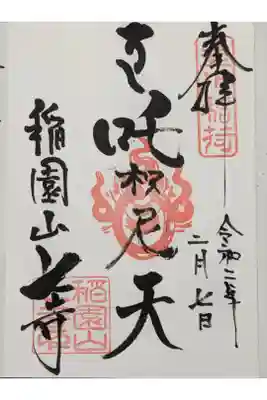 奉拝
令和二年
二月七日
吒枳尼天
稲園山七寺
稲園山